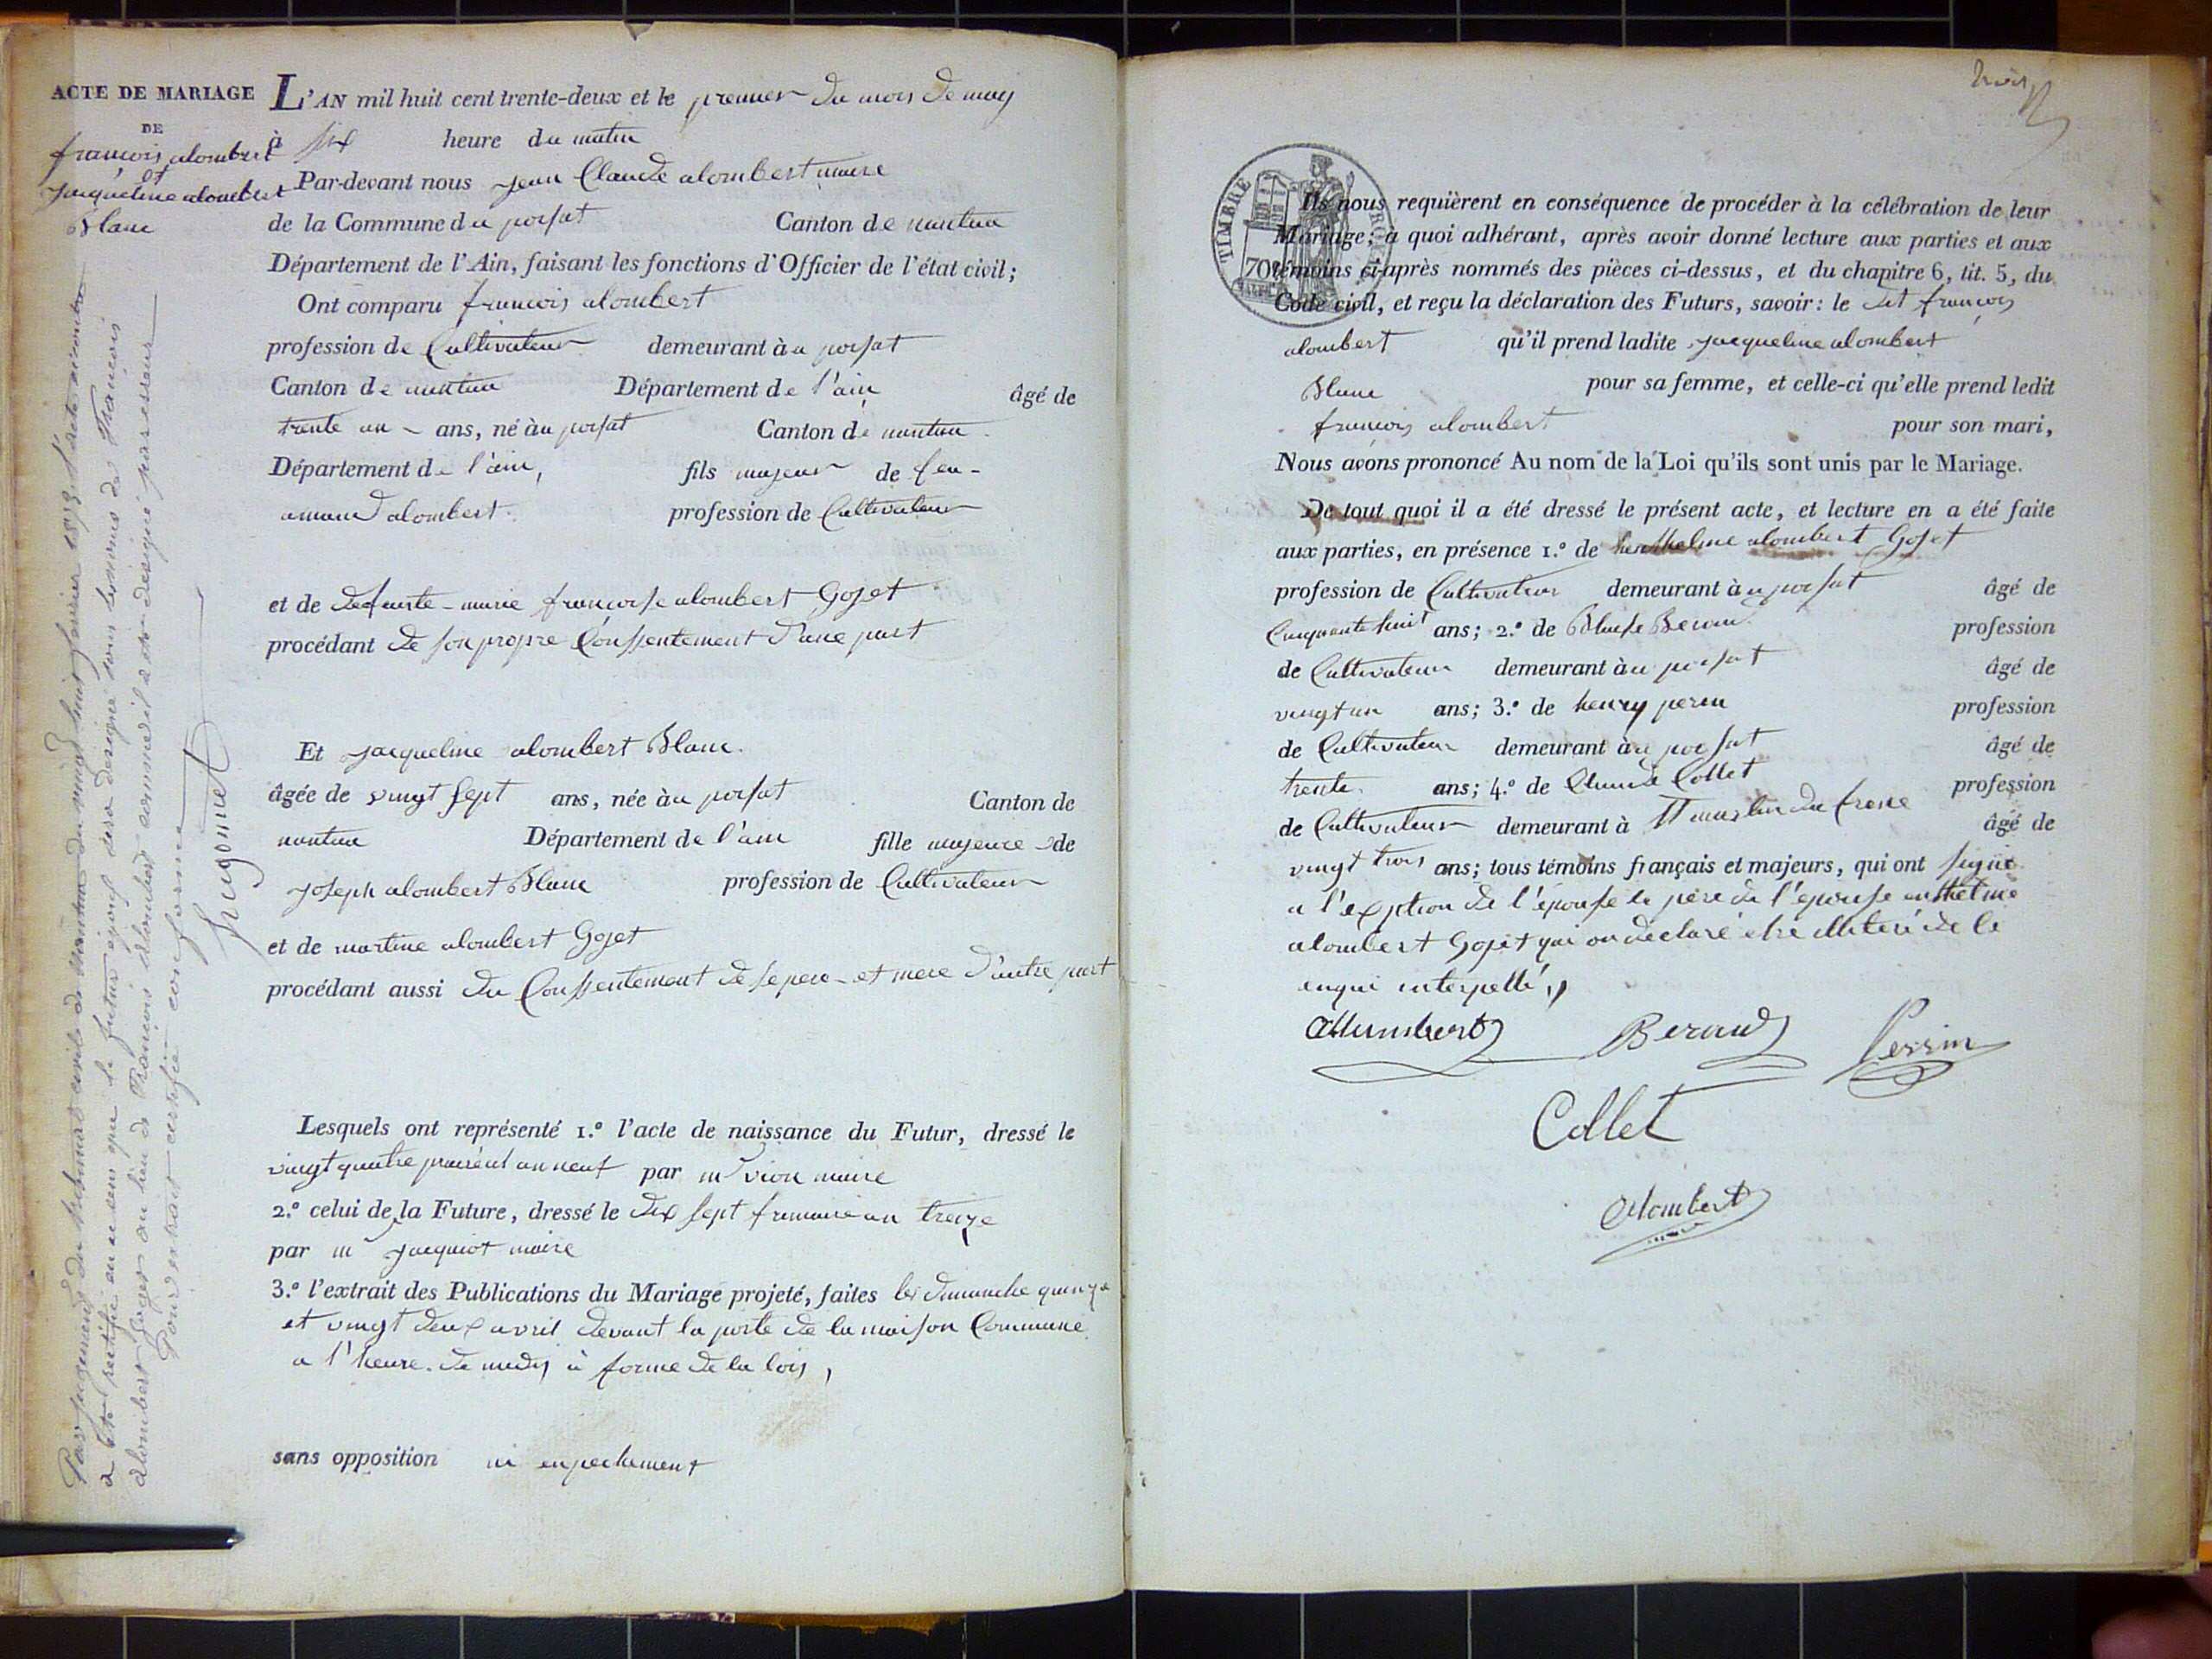 ACTE DE MARIAGE
DE
francois alombert
et
jacqueline alombert
Blanc
L'AN mil huit cent trente-deux et le premier du mois de may
à six heure du matin
Par-devant nous jean Claude alombert maire
de la Commune du poisat Canton de nantua
Département de l'Ain, faisant les fonctions d'Officier de l'état civil;
Ont comparu francois alombert
profession de Cultivateur demeurant à u poisat
Canton de nantua Département de l'ain âgé de
trente un ans, né à u poisat Canton de nantua
Département de l'ain, fils majeur de feu
amand alombert profession de Cultivateur
et de defunte marie francoise alombert Gojet
procédant de son propre Conssentement d'une part
Et jacqueline alombert Blanc.
âgée de vingt sept ans, née à u poisat Canton de
nantua Département de l'ain fille majeure de
joseph alombert Blanc profession de Cultivateur
et de martine alombert Gojet
procédant aussi du Conssentement de se pere et mere d'autre part
Lesquels ont représenté 1.º l'acte de naissance du Futur, dressé le
vingt quatre prairéal an neuf par mr vion maire
2.º celui de la Future, dressé le dix sept frimaire an treize
par mr jacquiot maire
3.º l'extrait des Publications du Mariage projeté, faites les dimanche quinze
et vingt deux avril devant la porte de la maison Commune
a l'heure de midy à forme de la lois,
sans opposition ni enpechement
Par jugement du tribunal civil de Nantua du vingt huit février l'acte
a été rectifié en ce sens que le futur époux sera désigné sous les noms de François
alombert Gojet au lieu de François alombert comme il a été désigné par erreur
Pour extrait certifié conforme
hugonnet
trois
TIMBRE ROYAL
70
Ils nous requièrent en conséquence de procéder à la célébration de leur
Mariage; à quoi adhérant, après avoir donné lecture aux parties et aux
témoins ci-après nommés des pièces ci-dessus, et du chapitre 6, tit. 5, du
Code civil, et reçu la déclaration des Futurs, savoir: le dit francois
alombert qu'il prend ladite jacqueline alombert
Blanc pour sa femme, et celle-ci qu'elle prend ledit
francois alombert pour son mari,
Nous avons prononcé Au nom de la Loi qu'ils sont unis par le Mariage.
De tout quoi il a été dressé le présent acte, et lecture en a été faite
aux parties, en présence 1.º de alombert Gojet
profession de Cultivateur demeurant à u poisat âgé de
Cinquante huit ans; 2.º de Blaise Beraud profession
de Cultivateur demeurant à u poisat âgé de
vingt un ans; 3.º de henry perin profession
de Cultivateur demeurant à u poisat âgé de
trente ans; 4.º de Claude Collet profession
de Cultivateur demeurant à St martin du frene âgé de
vingt trois ans; tous témoins français et majeurs, qui ont signé
a l'exption de l'épouse le père de l'epouse anthelme
alombert Gojet qui on déclaré etre illiteré de ce
enqui interpellé,
Allumbert Beraud Perrin
Collet
Alombert